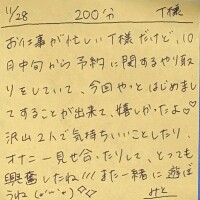 11/28 200分 T様
お仕事が忙しいT様だけど、10
月中旬から予約に関するやり取
りをしていて、今回やっとはじめまし
てすることが出来て、嬉しかったよ♡
沢山2人で気持ちいいことしたり、
オナニー見せ合ったりして、とっても
興奮したね!!! また一緒に遊ぼ
うね
みと